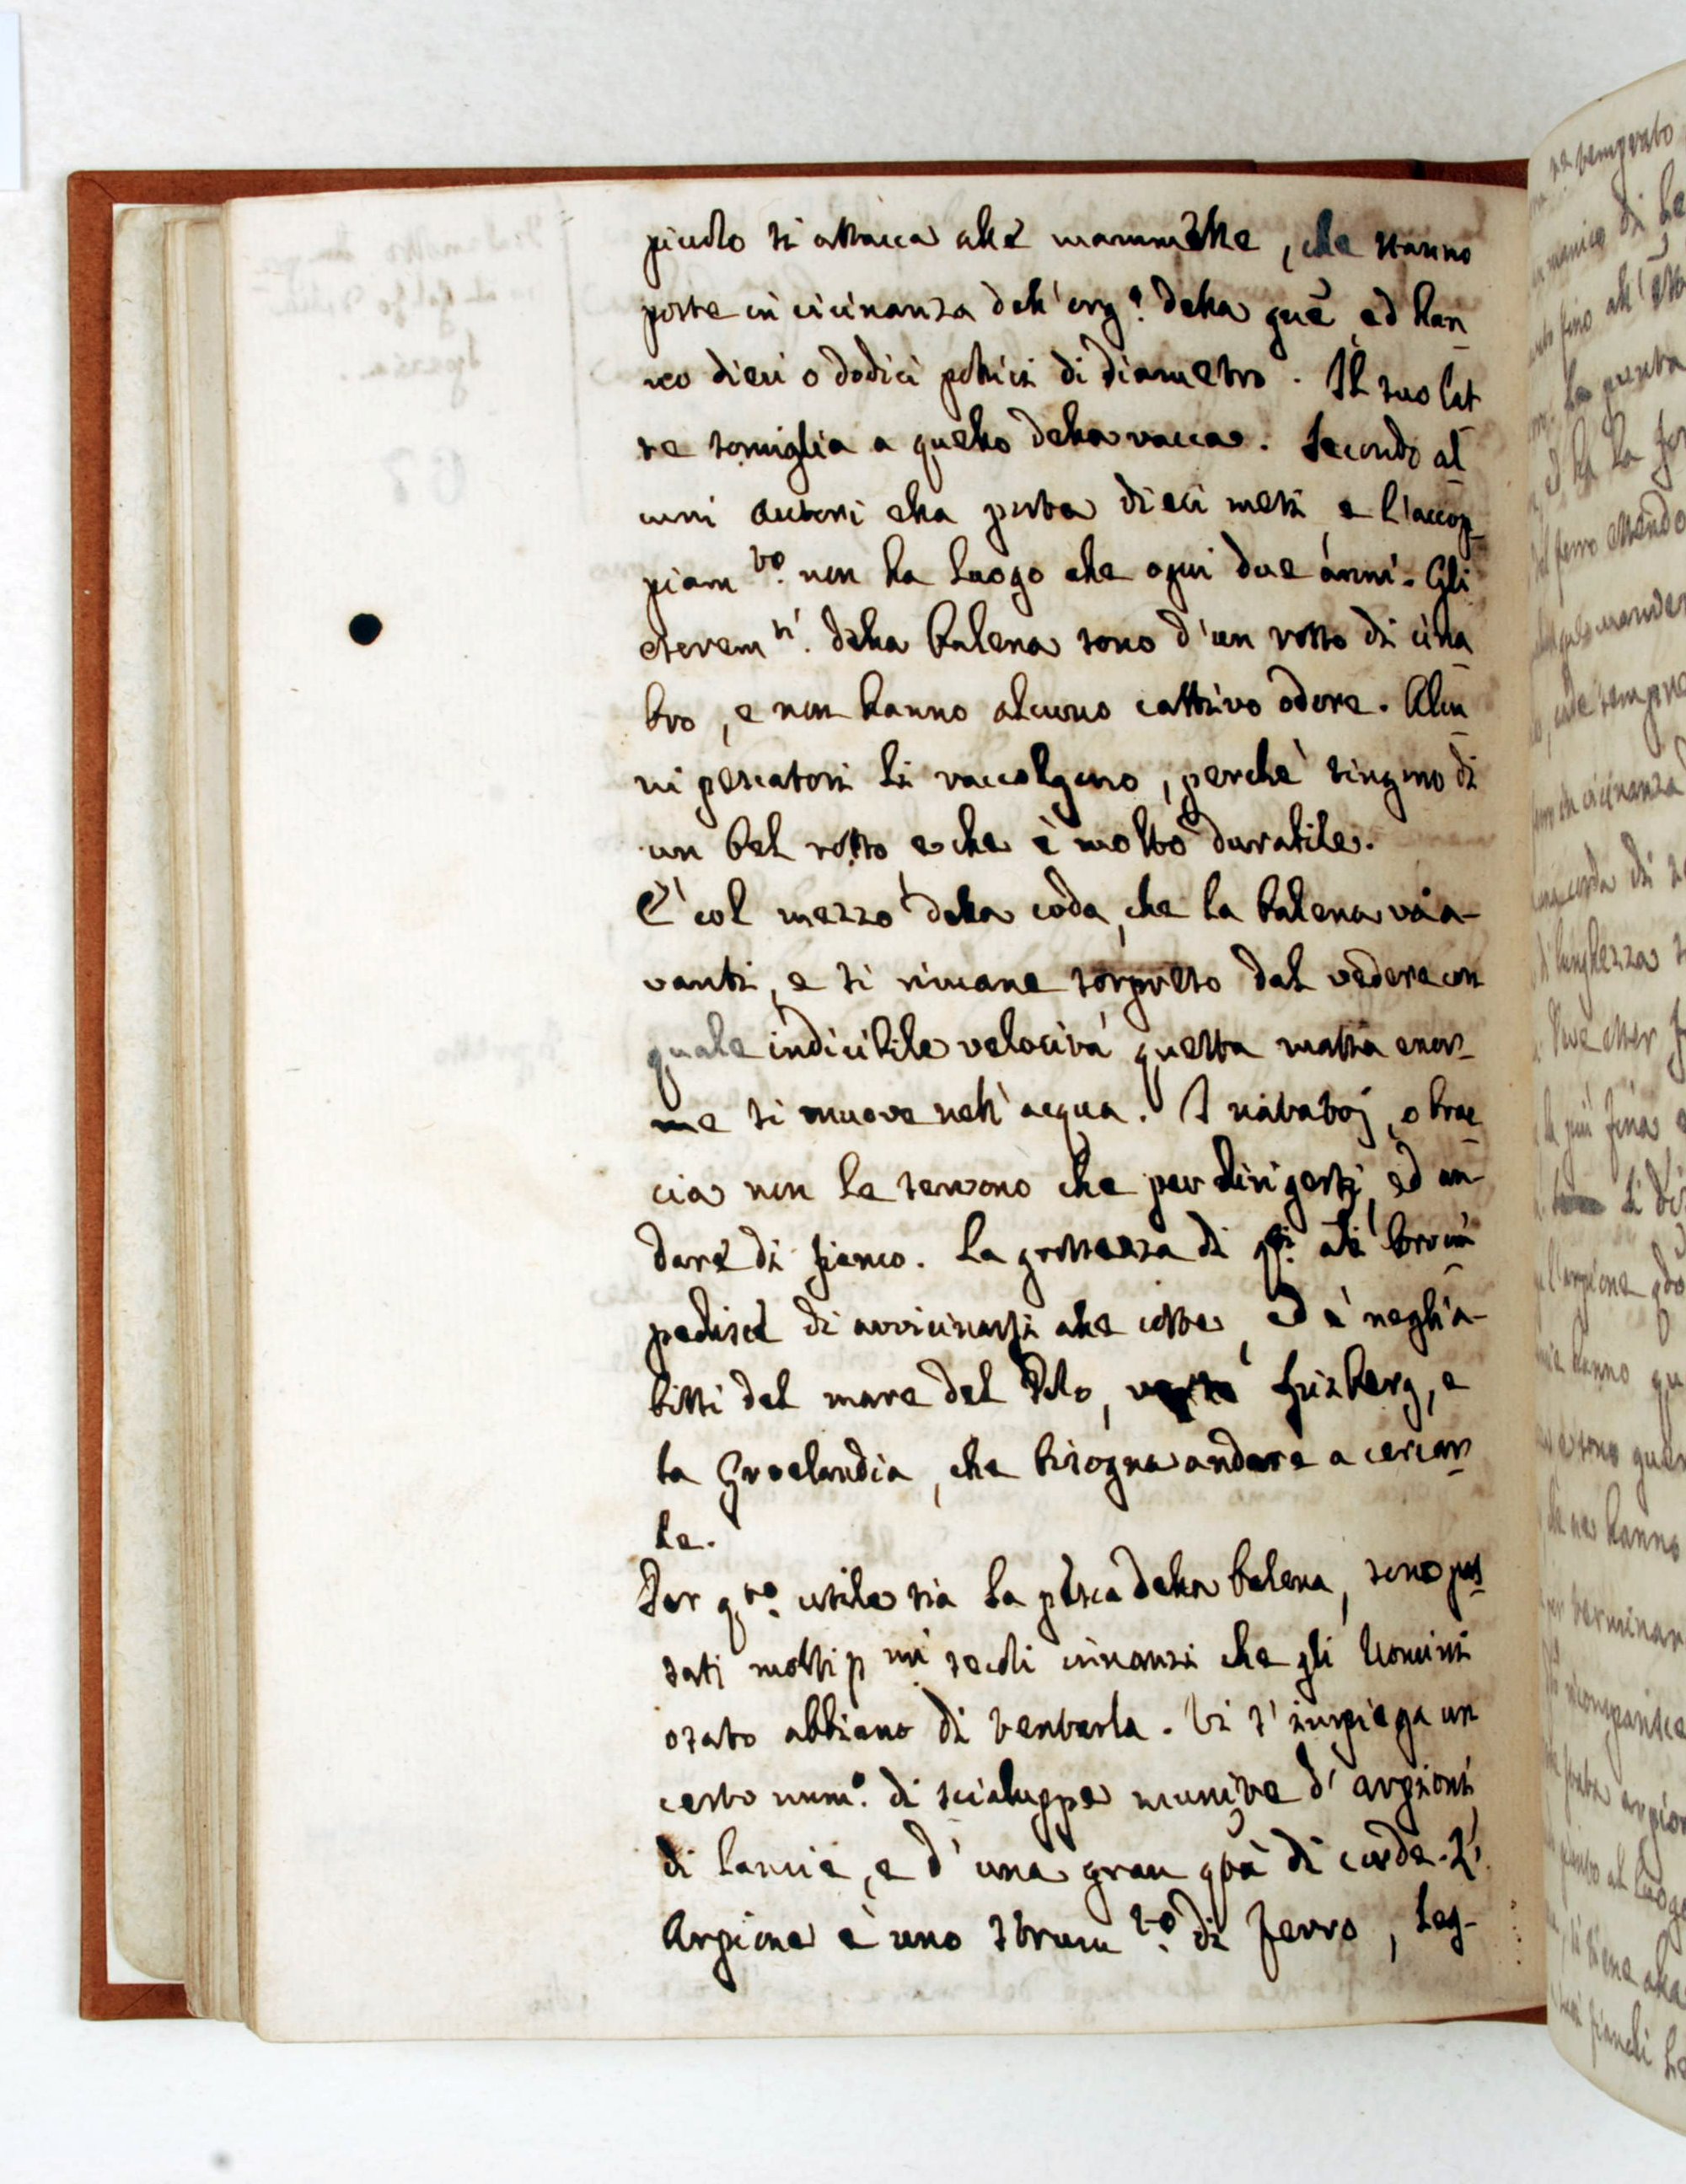 piccolo si attacca alle mammelle, che stanno
poste in vicinanza dell'org.o della gñe, ed han
no dieci o dodici pollici di diametro. Il suo lat
te somiglia a quello della vacca. Secondo al
cuni autori ella porta dieci mesi, e l'accop
piam.to non ha luogo che ogni due anni. Gli
escrem.ti della balena sono d'un rosso di cina
bro, e non hanno alcuno cattivo odore. Alcu
ni pescatori li raccolgono, perchè tingono di
un bel rosso e che è molto durabile.
E' col mezzo della coda, che la balena va a-
vanti, e si rimane sorpreso dal vedere con
quale indicibile velocità questa massa enor
me si muove nell'acqua. I natatoj, o brac
cia non le servono che per dirigersi, ed an-
dare di fianco. La grossezza di q.ti
pedisce di avvicinarsi alle coste, ed è negl'a-
bissi del mare del Polo, verso Spizberg, e
la Groelandia, che bisogna andare a cercar
le.
Per q.to utile sia la pesca della balena, sono pas
sati moltip.mi secoli innanzi che gli Uomini
osato abbiano di tentarla. Vi s'impiega un
certo num.o di scialuppe munite d'arpioni
di lancie, e d'una gran qtà di corde. L'
Arpione è uno strum.to di ferro, lag-